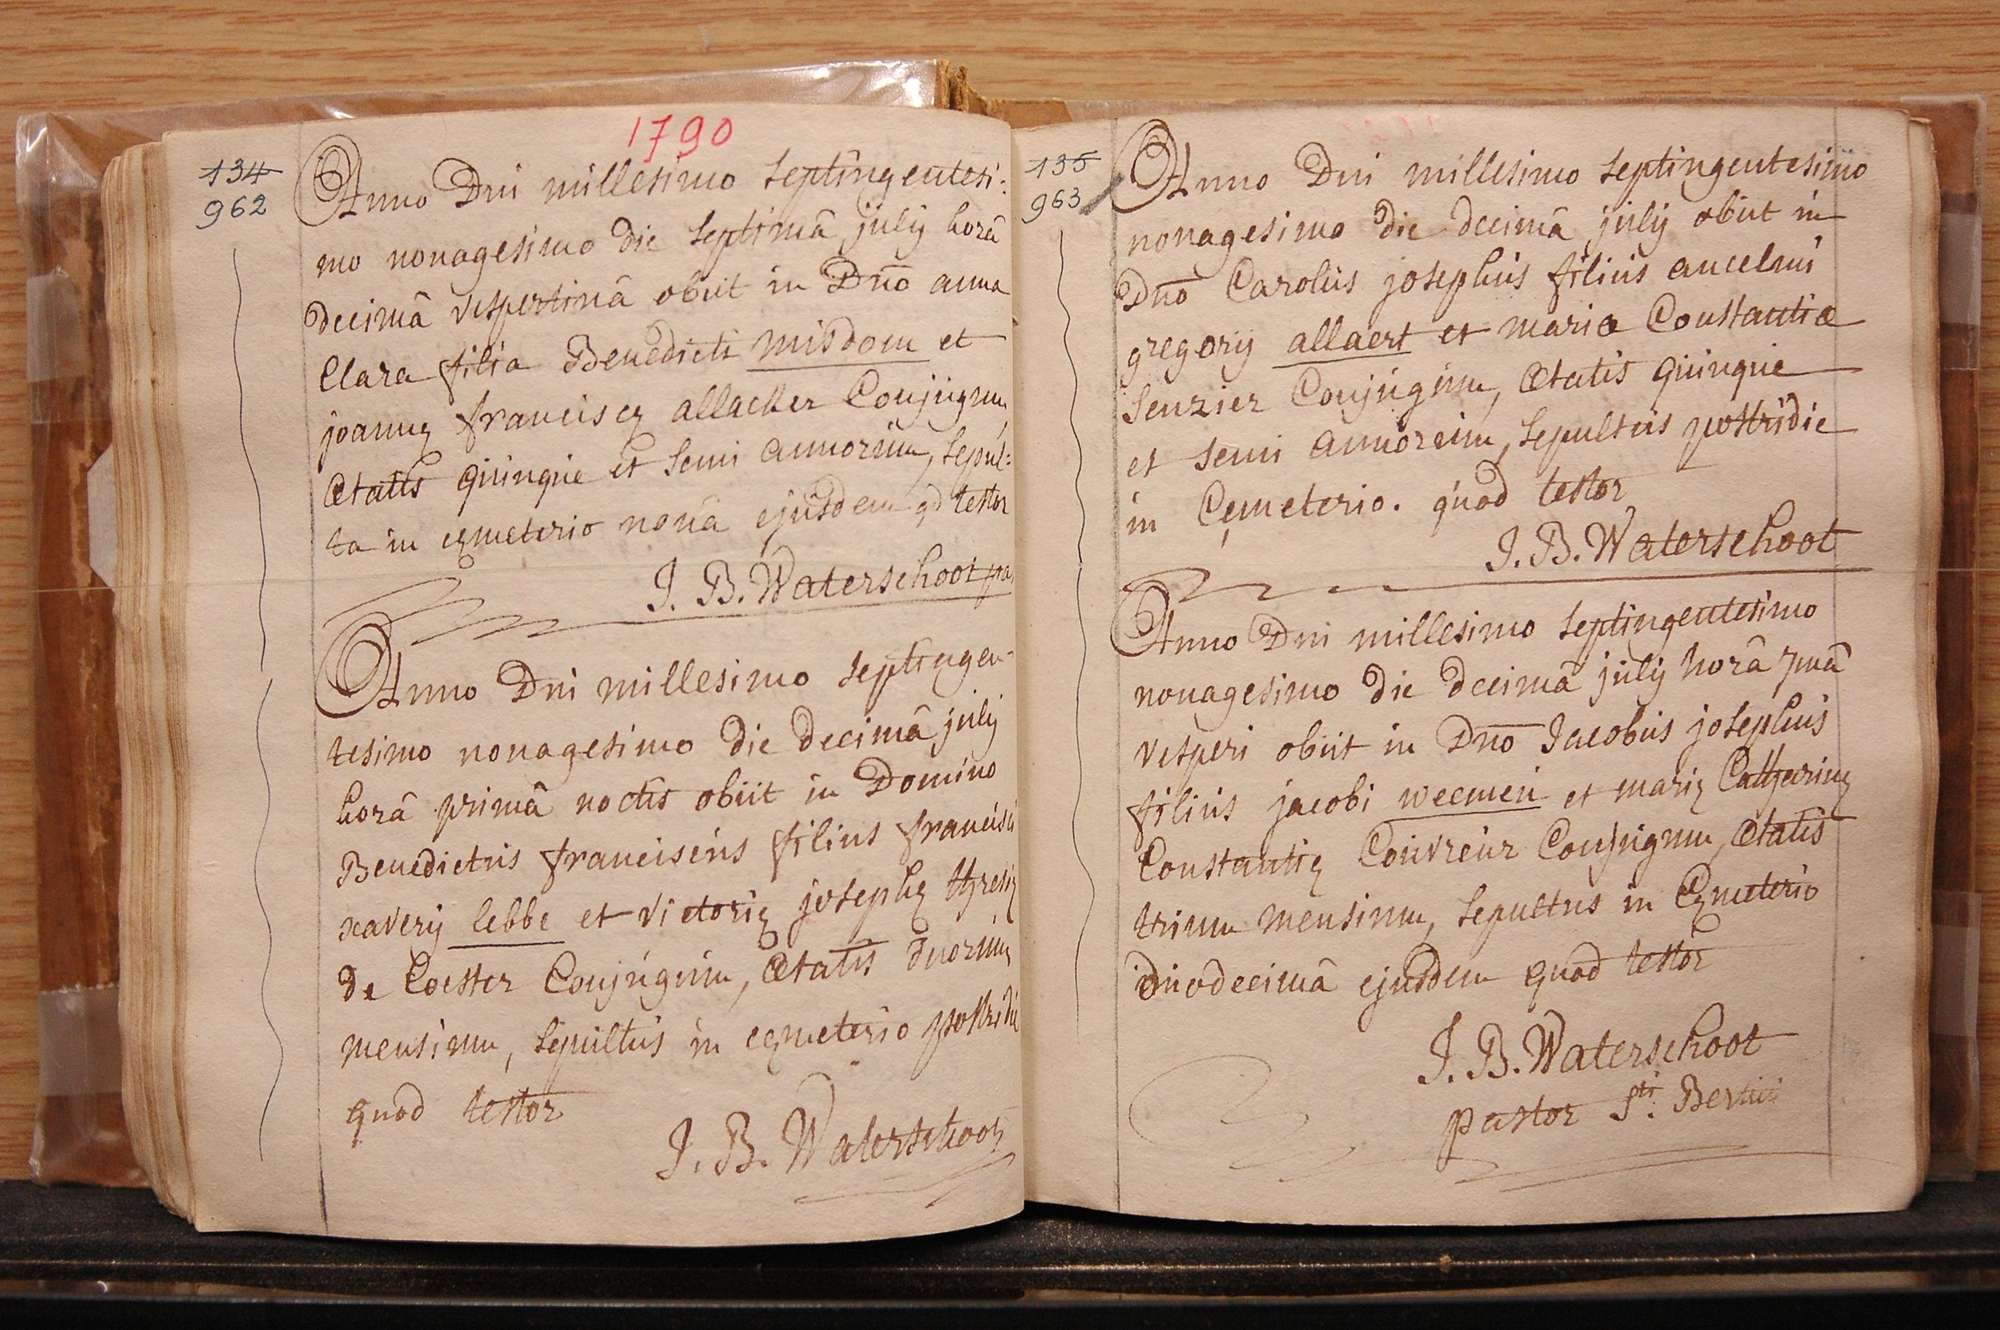 1790
134
962
Anno Dni millesimo septingentesi:
mo nonagesimo die septimâ julÿ horâ
decimâ vespertinâ obiit in Dno anna
Clara filia Benedicti misdom et
joannę franciscę allacker Conjugum,
ætatis quinque et semi annorum, sepul:
ta in cęmeterio nonâ ejusdem qd testor
J. B. Waterschoot pa
Anno Dni millesimo septingen-
tesimo nonagesimo die decimâ julÿ
horâ primâ noctis obiit in Domino
Benedictus franciscus filius francisci
xaverÿ lebbe et victorię josephę thresię
de Coester Conjugum, ætatis duorum
mensium, sepultus in cęmeterio postridie
quod testor
J. B. Waterschoot
135
963
Anno Dni millesimo septingentesimo
nonagesimo die decimâ julÿ obiit in
Dno Carolus josephus filius ancelmi
gregorÿ allaert et mariæ Constantiæ
Senzier Conjugum, ætatis quinque
et semi annorum, sepultus postridie
in Cęmeterio. quod testor
J. B. Waterschoot
Anno Dni millesimo septingentesimo
nonagesimo die decimâ julÿ horâ 7mâ
vesperi obiit in Dno Jacobus josephus
filius jacobi weemen et marię Catharinę
Constantię Couvreur Conjugum, ætatis
trium mensium, sepultus in Cęmeterio
duodecimâ ejusdem quod testor
J. B. Waterschoot
pastor Sti. Bertini